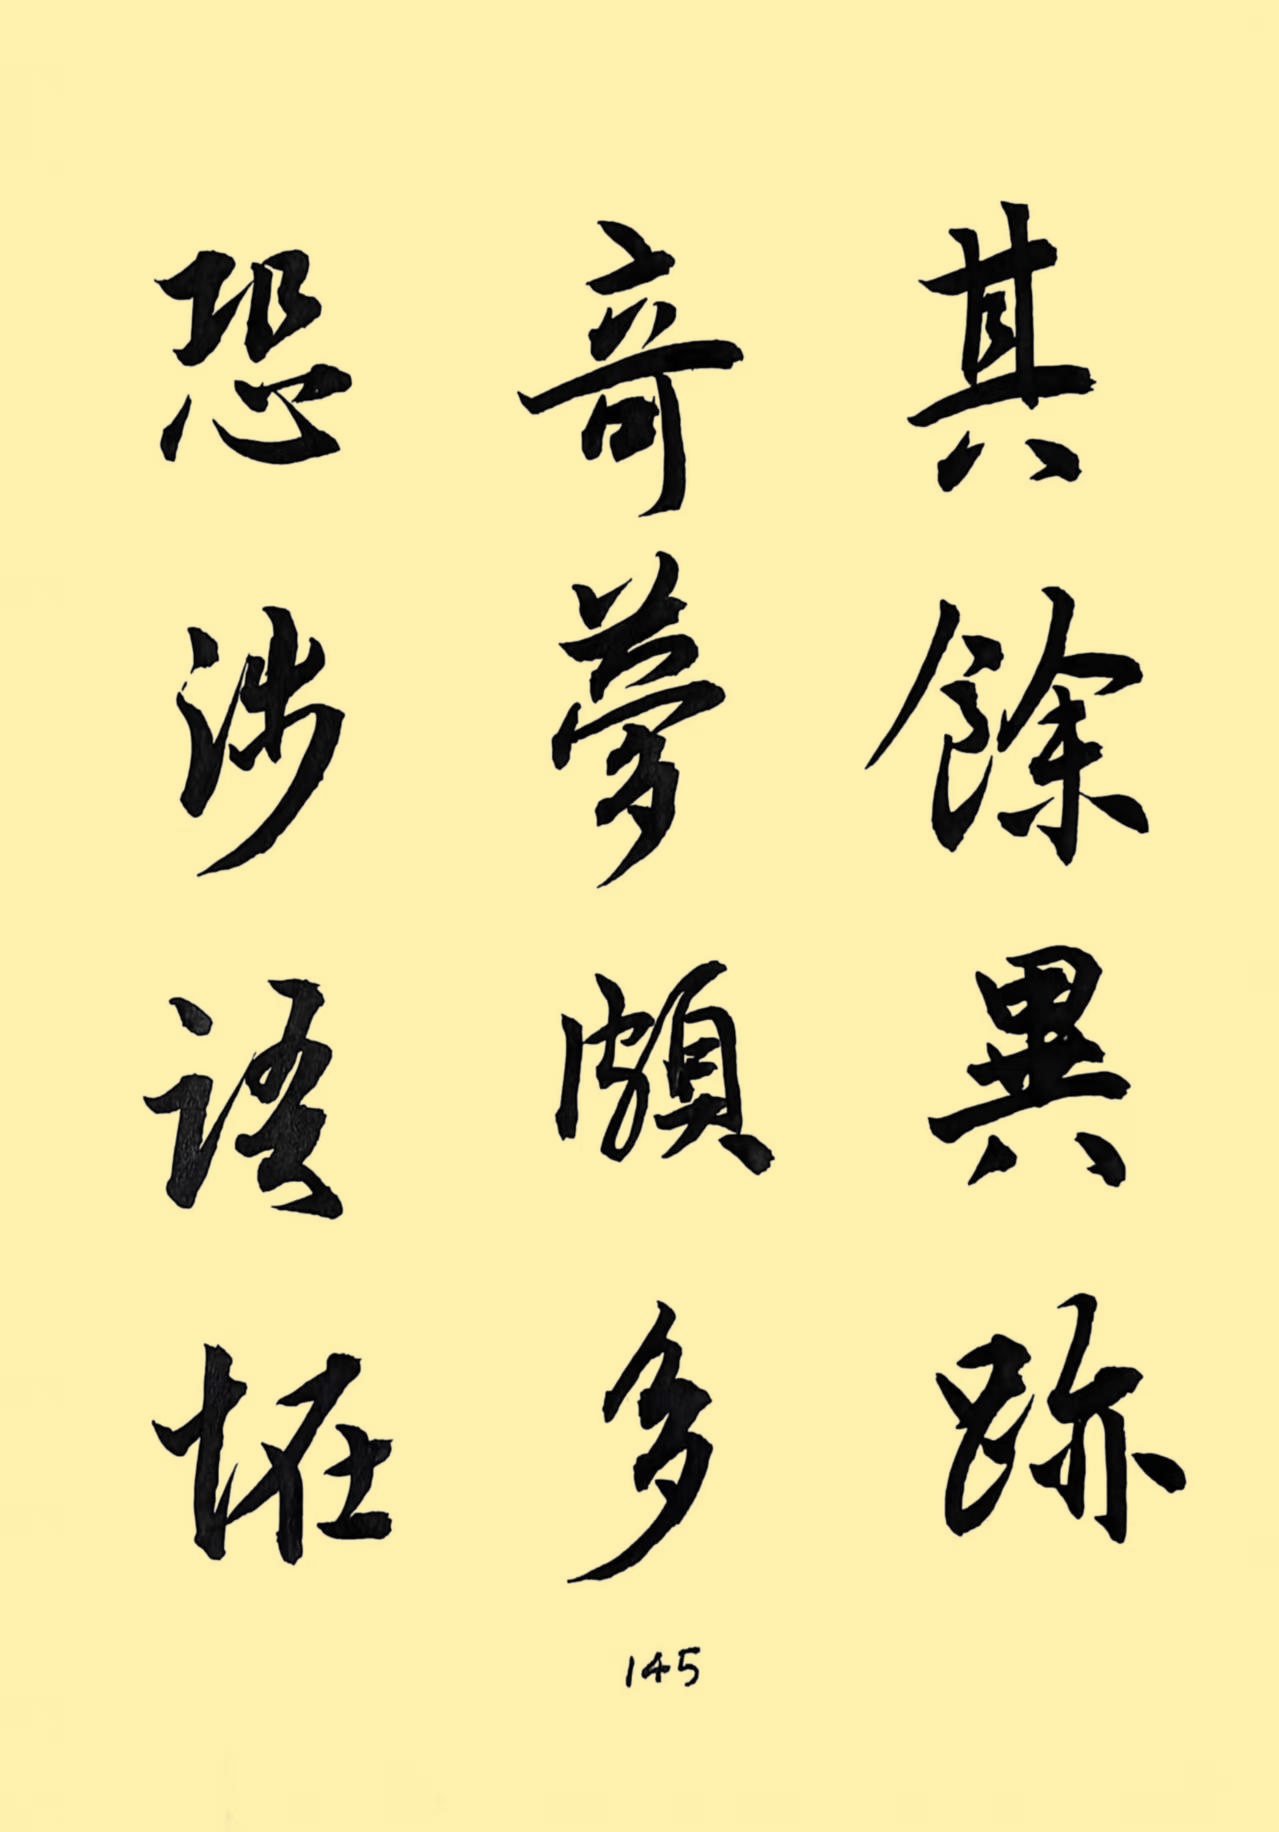 其餘異跡
竒夢頗多
恐涉語恠
145